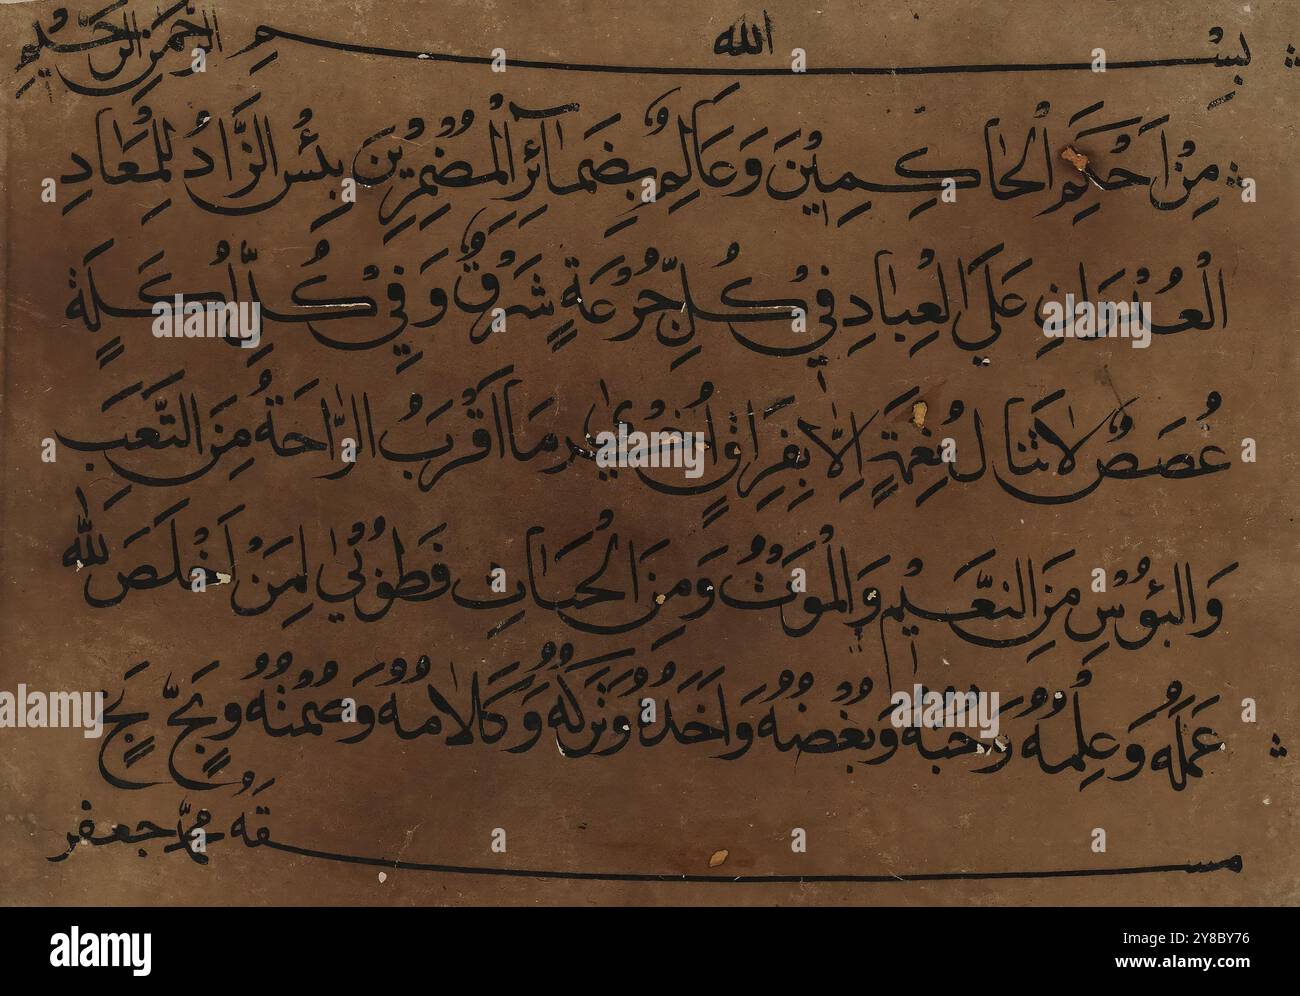 بِسْمِ الله الرحمن الرحيم
مِنْ اَحْكَمِ الْحَاكِمِيْنَ وَعَالِمٌ بِضَمَائِرِ الْمُضْمِرِيْنَ بِئْسَ الزَّادُ لِلْمَعَادِ
الْعُدْوَانِ عَلَى الْعِبَادِ فِي كُلِّ جُرْعَةٍ شَرَقٌ وَفِي كُلِّ اُكْلَةٍ
غُصَصٌ لَا تَنَالُ نِعْمَةٍ اِلَّا بِفِرَاقٍ اُخْرٰى مَا اَقْرَبُ الرَّاحَةُ مِنَ التَّعَبِ
وَالبُؤْسِ مِنَ النَّعِيْمِ وَالْمَوْتُ وَمِنَ الْحَيَاتِ فَطُوْبٰى لِمَنْ اَخْلَصَ لِلّٰه
عَمَلُهُ وَعِلْمُهُ وَحُبُّهُ وَبُغْضُهُ وَاَخْذُهُ وَتَرْكُهُ وَكَلَامُهُ وَصُمْتُهُ وَبَخٍّ بَخٍ
مشقه محمد جعفر
alamy
Image ID: 2Y8BY76
www.alamy.com